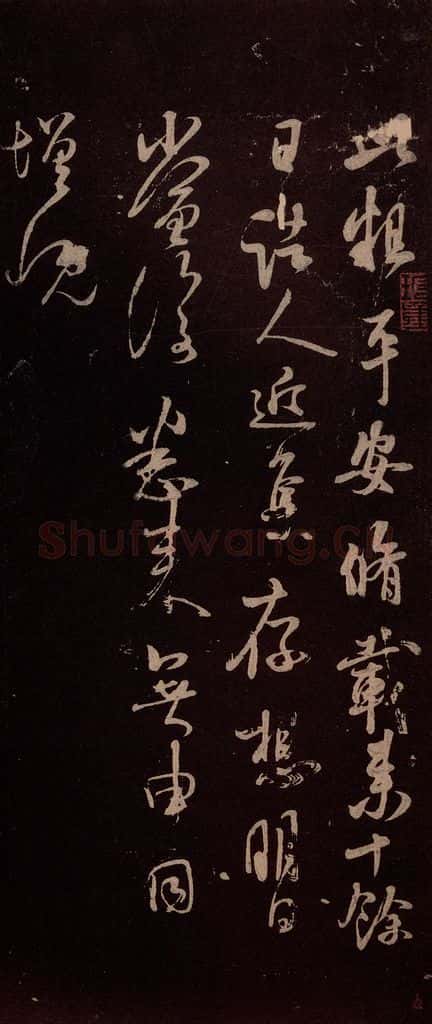 此粗平安脩載来十餘
日諸人近集存想明日
當復悉来無由同
增慨
Shufawang.cn